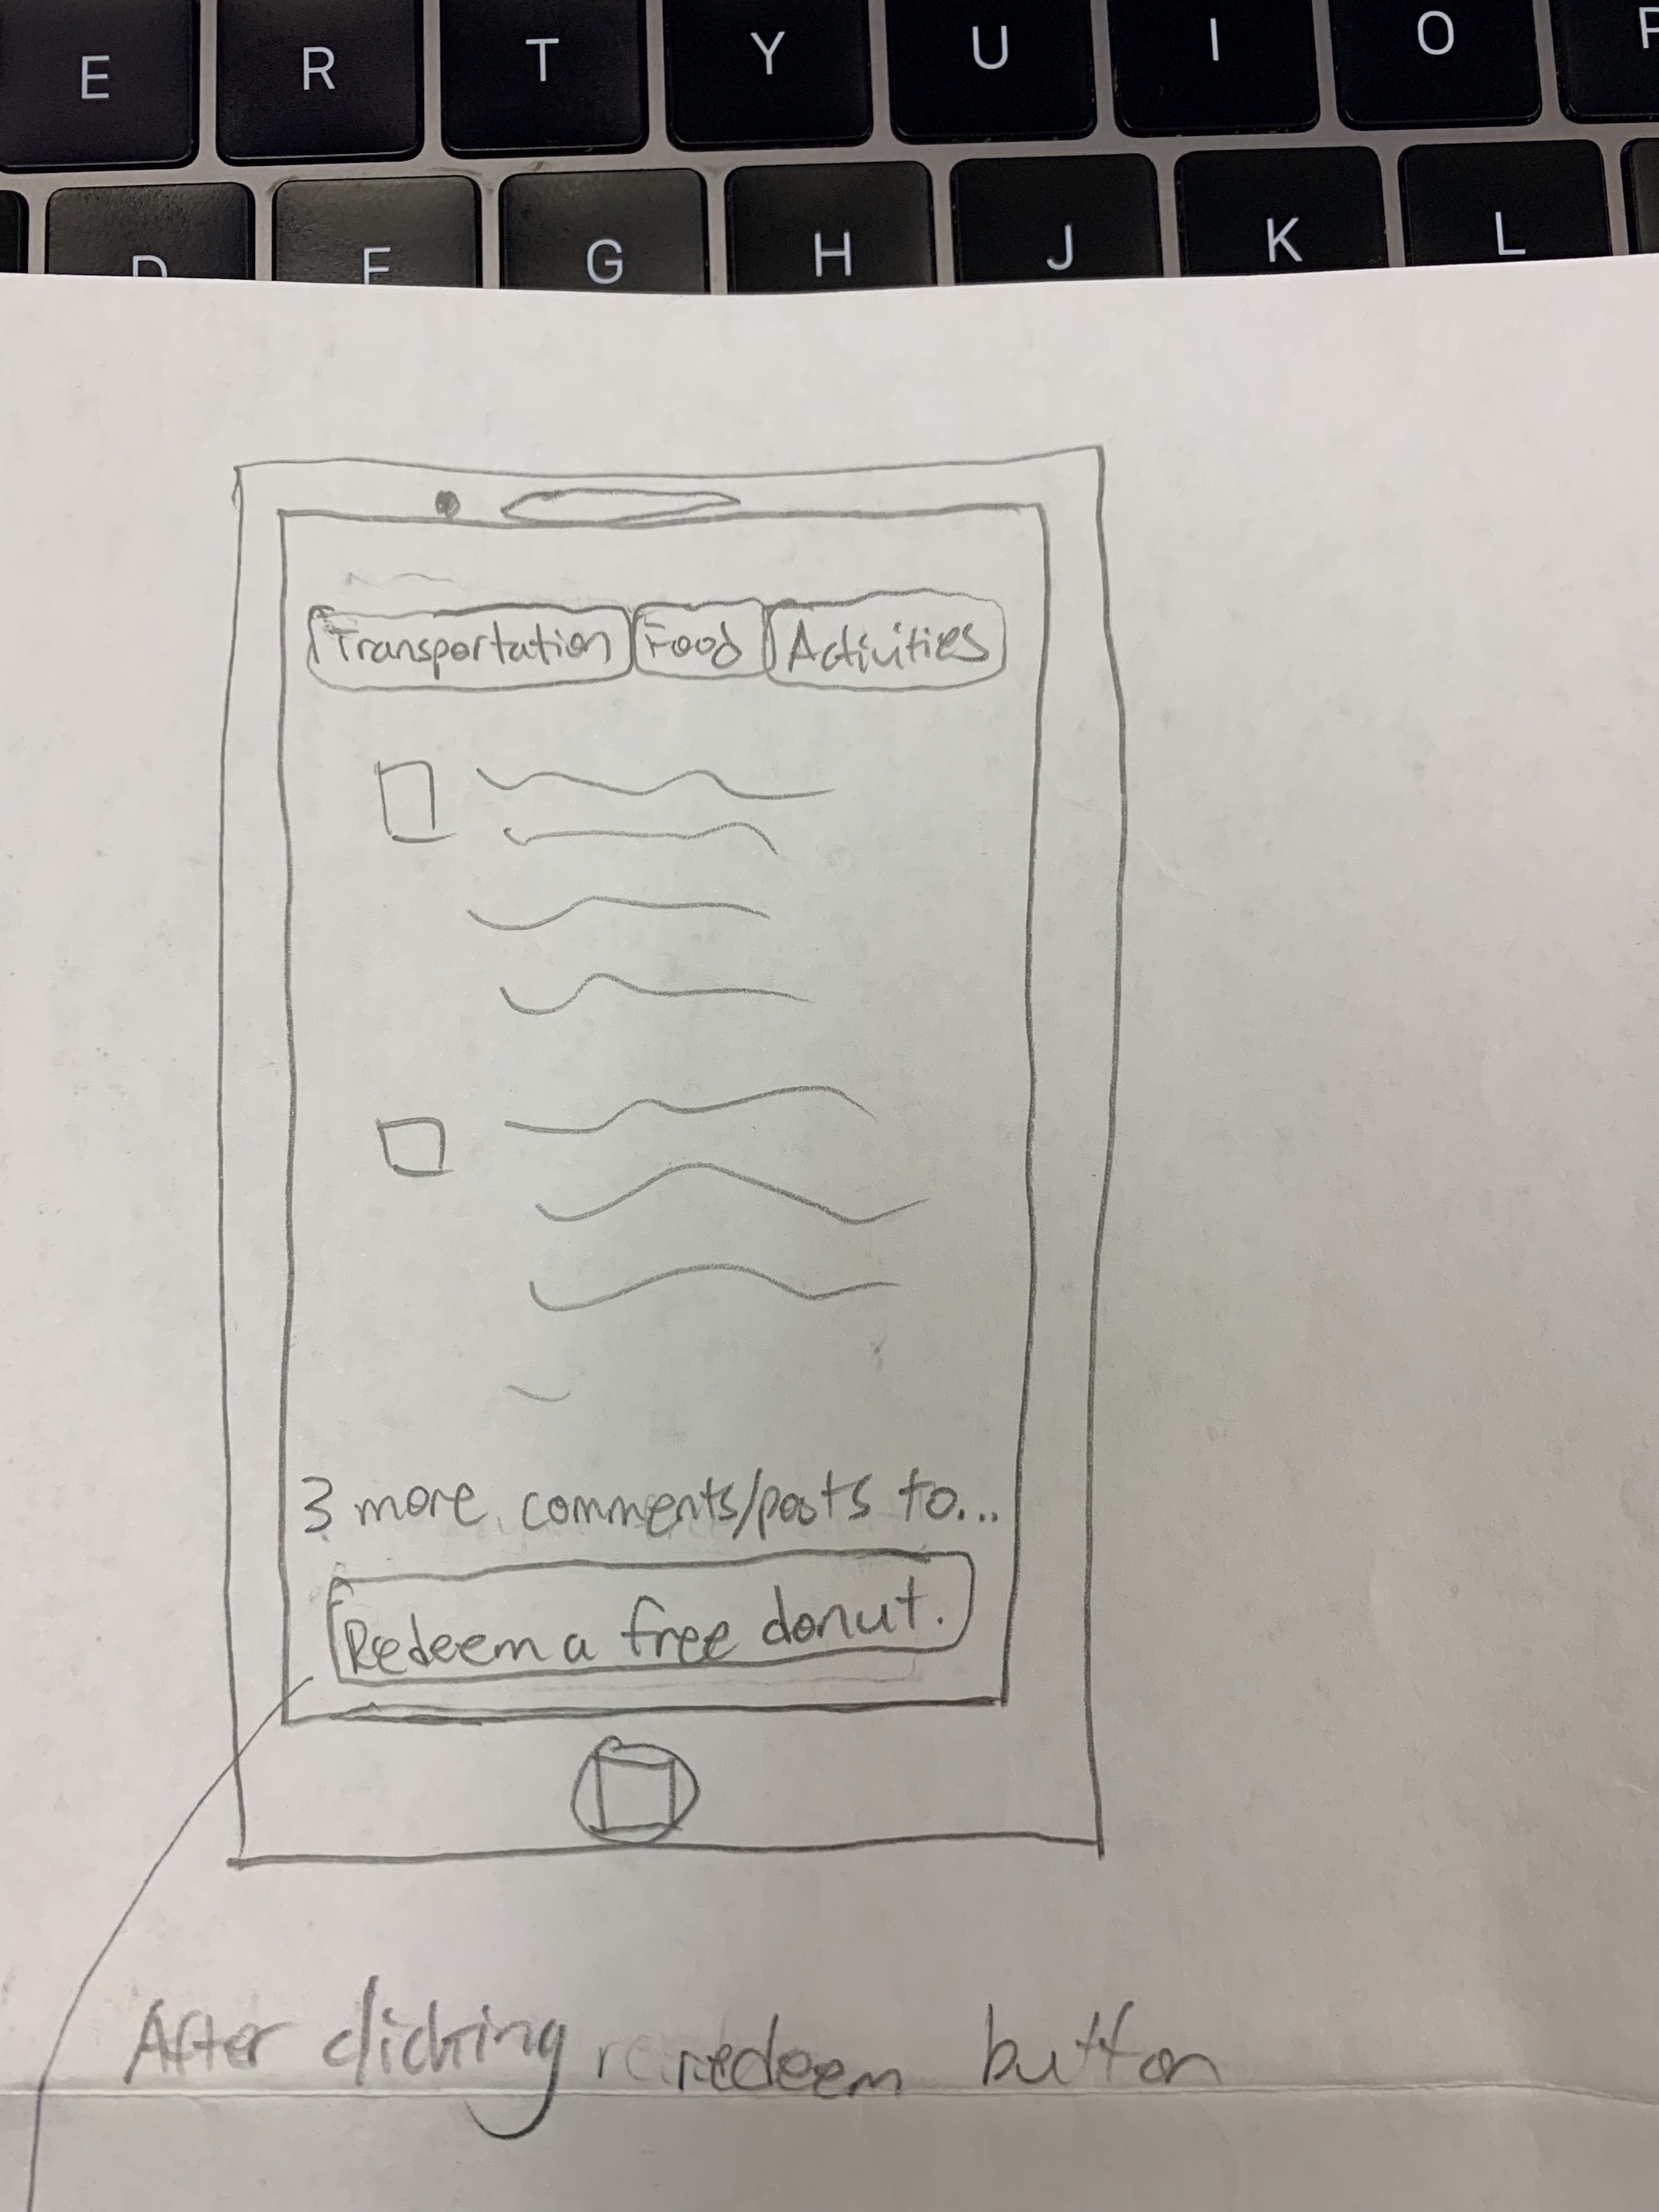 E R T Y U I O P
D F G H J K L
Transportation Food Activities
3 more comments/posts to...
Redeem a free donut.
After clicking redeem button